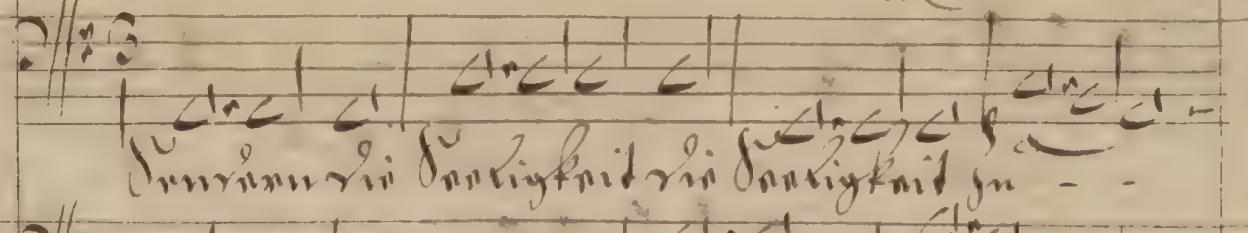 die Seeligkeit die Seeligkeit zu - -